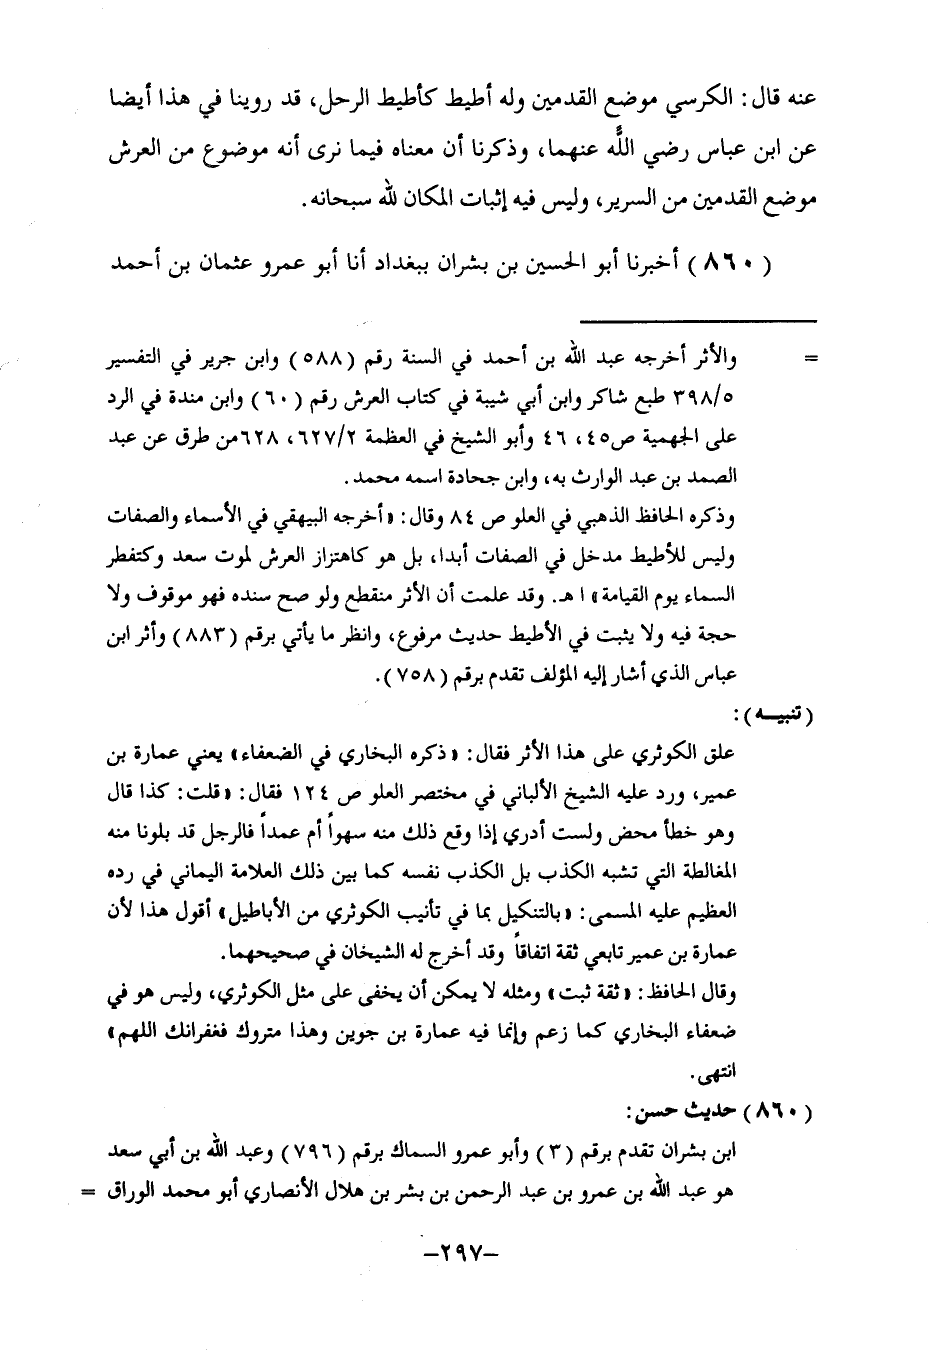 عنه قال: الكرسي موضع القدمين وله أطيط كأطيط الرحل، قد روينا في هذا أيضا
عن ابن عباس رضي اللّٰه عنهما، وذكرنا أن معناه فيما نرى أنه موضوع من العرش
موضع القدمين من السرير، وليس فيه إثبات المكان لله سبحانه.
(٨٦٠) أخبرنا أبو الحسين بن بشران ببغداد أنا أبو عمرو عثمان بن أحمد
= والأثر أخرجه عبد الله بن أحمد في السنة رقم (٥٨٨) وابن جرير في التفسير
٣٩٨/٥ طبع شاكر وابن أبي شيبة في كتاب العرش رقم (٦٠) وابن مندة في الرد
على الجهمية ص٤٥، ٤٦ وأبو الشيخ في العظمة ٦٢٧/٢، ٦٢٨من طرق عن عبد
الصمد بن عبد الوارث به، وابن جحادة اسمه محمد.
وذكره الحافظ الذهبي في العلو ص ٨٤ وقال: «أخرجه البيهقي في الأسماء والصفات
وليس للأطيط مدخل في الصفات أبدا، بل هو كاهتزاز العرش لموت سعد وكتفطر
السماء يوم القيامة» ا هـ. وقد علمت أن الأثر منقطع ولو صح سنده فهو موقوف ولا
حجة فيه ولا يثبت في الأطيط حديث مرفوع، وانظر ما يأتي برقم (٨٨٣) وأثر ابن
عباس الذي أشار إليه المؤلف تقدم برقم (٧٥٨).
(تنبيـــه):
علق الكوثري على هذا الأثر فقال: «ذكره البخاري في الضعفاء» يعني عمارة بن
عمير، ورد عليه الشيخ الألباني في مختصر العلو ص ١٢٤ فقال: «قلت: كذا قال
وهو خطأ محض ولست أدري إذا وقع ذلك منه سهواً أم عمداً فالرجل قد بلونا منه
المغالطة التي تشبه الكذب بل الكذب نفسه كما بين ذلك العلامة اليماني في رده
العظيم عليه المسمى: «بالتنكيل بما في تأنيب الكوثري من الأباطيل» أقول هذا لأن
عمارة بن عمير تابعي ثقة اتفاقاً وقد أخرج له الشيخان في صحيحهما.
وقال الحافظ: «ثقة ثبت» ومثله لا يمكن أن يخفى على مثل الكوثري، وليس هو في
ضعفاء البخاري كما زعم وإنما فيه عمارة بن جوين وهذا متروك فغفرانك اللهم»
انتهى.
(٨٦٠) حديث حسن:
ابن بشران تقدم برقم (٣) وأبو عمرو السماك برقم (٧٩٦) وعبد الله بن أبي سعد
هو عبد الله بن عمرو بن عبد الرحمن بن بشر بن هلال الأنصاري أبو محمد الوراق =
–٢٩٧–